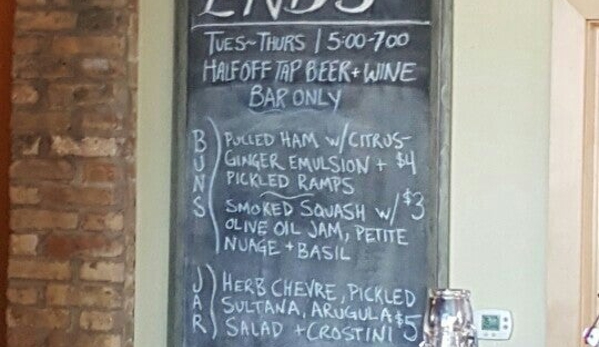 ENDS
TUES~THURS | 5:00-7:00
HALF OFF TAP BEER + WINE
BAR ONLY
BUNS
PULLED HAM W/ CITRUS-
GINGER EMULSION + $4
PICKLED RAMPS
SMOKED SQUASH W/ $3
OLIVE OIL JAM, PETITE
NUAGE + BASIL
JAR
HERB CHEVRE, PICKLED
SULTANA, ARUGULA $5
SALAD + CROSTINI